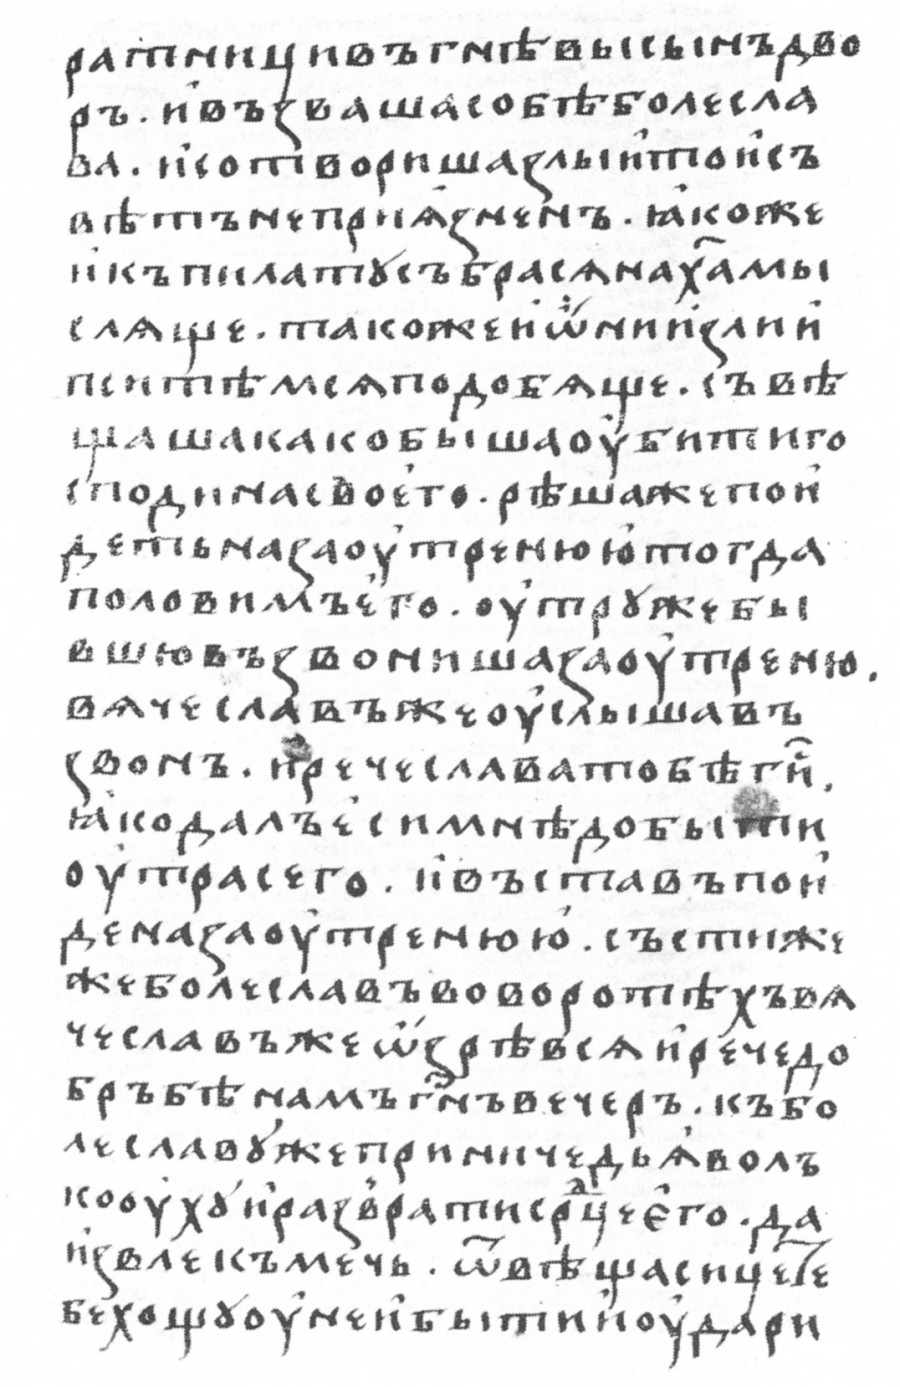 ратници въ гнѣвысынъ дво
ръ. и възваша собѣ болесла
ва. и сотвориша злыи тои съ
вѣтъ неприязненъ. ꙗкоже
и къ пилату събрашася на х҃а мы
сляще. такоже и ѿнии злии
пси тѣмся подобяще. съвѣ
щаша како быша оубити го
сподина своего. рѣша же пои
деть на заоутренюю тогда
половимъ его. оутру же бы
вшю възвониша заоутреню.
вячеславъ же оуслышавъ
звонъ. и рече слава тобѣ г҃и.
ꙗко далъ еси мнѣ дожыти
оутра сего. и въставъ пои
де на заоутренюю. състиже
же болеславъ во воротѣхъ вя
чеславъ же ѡзрѣвся и рече до
бръ бѣ намъ г҃нъ вечеръ. къ бо
леславу же приниче дьяволъ
ко оуху и разврати срⷣце его. да
извлекъ мечь. ѿвѣщаси це те
бе хощу оунеи быти и оудари